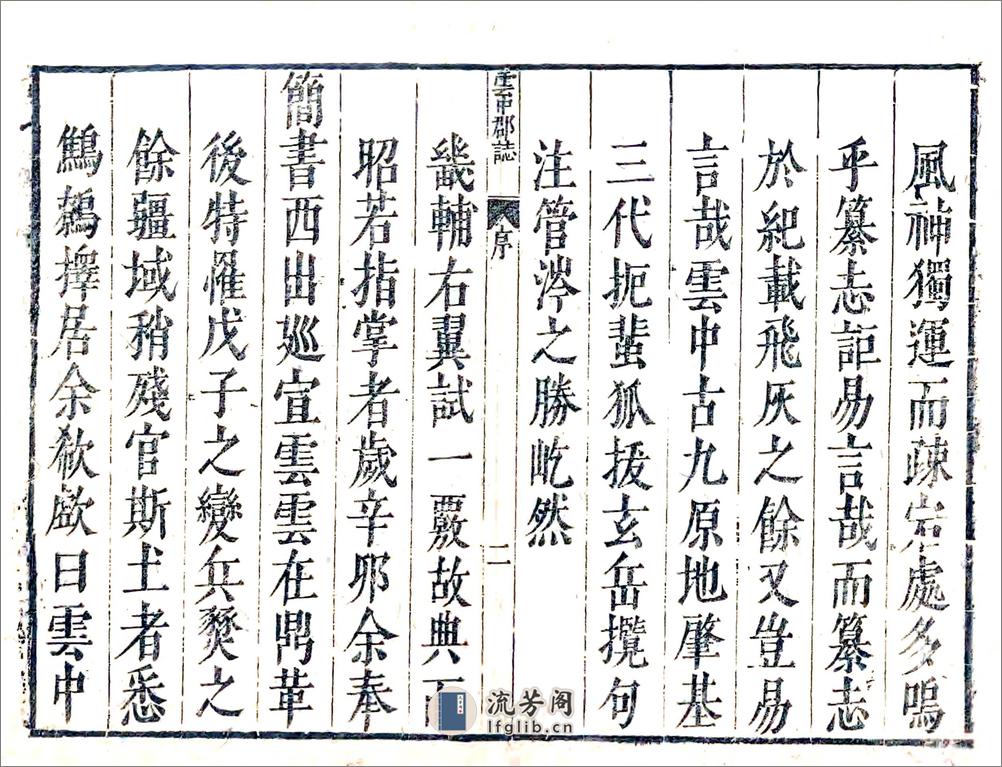 風神獨運而疎宕處多嗚
乎纂志詎易言哉而纂志
於紀載飛灰之餘又豈易
言哉雲中古九原地肇基
三代扼蜚狐援玄岳攬句
注管涔之勝屹然
雲中郡誌
序
二
畿輔右翼試一覈故典
昭若指掌者歲辛卯余奉
簡書西出巡宣雲雲在鼎革
後特罹戊子之變兵燹之
餘疆域稍殘官斯土者悉
鷦鷯擇居余欷歔曰雲中
流芳阁
lfglib.cn